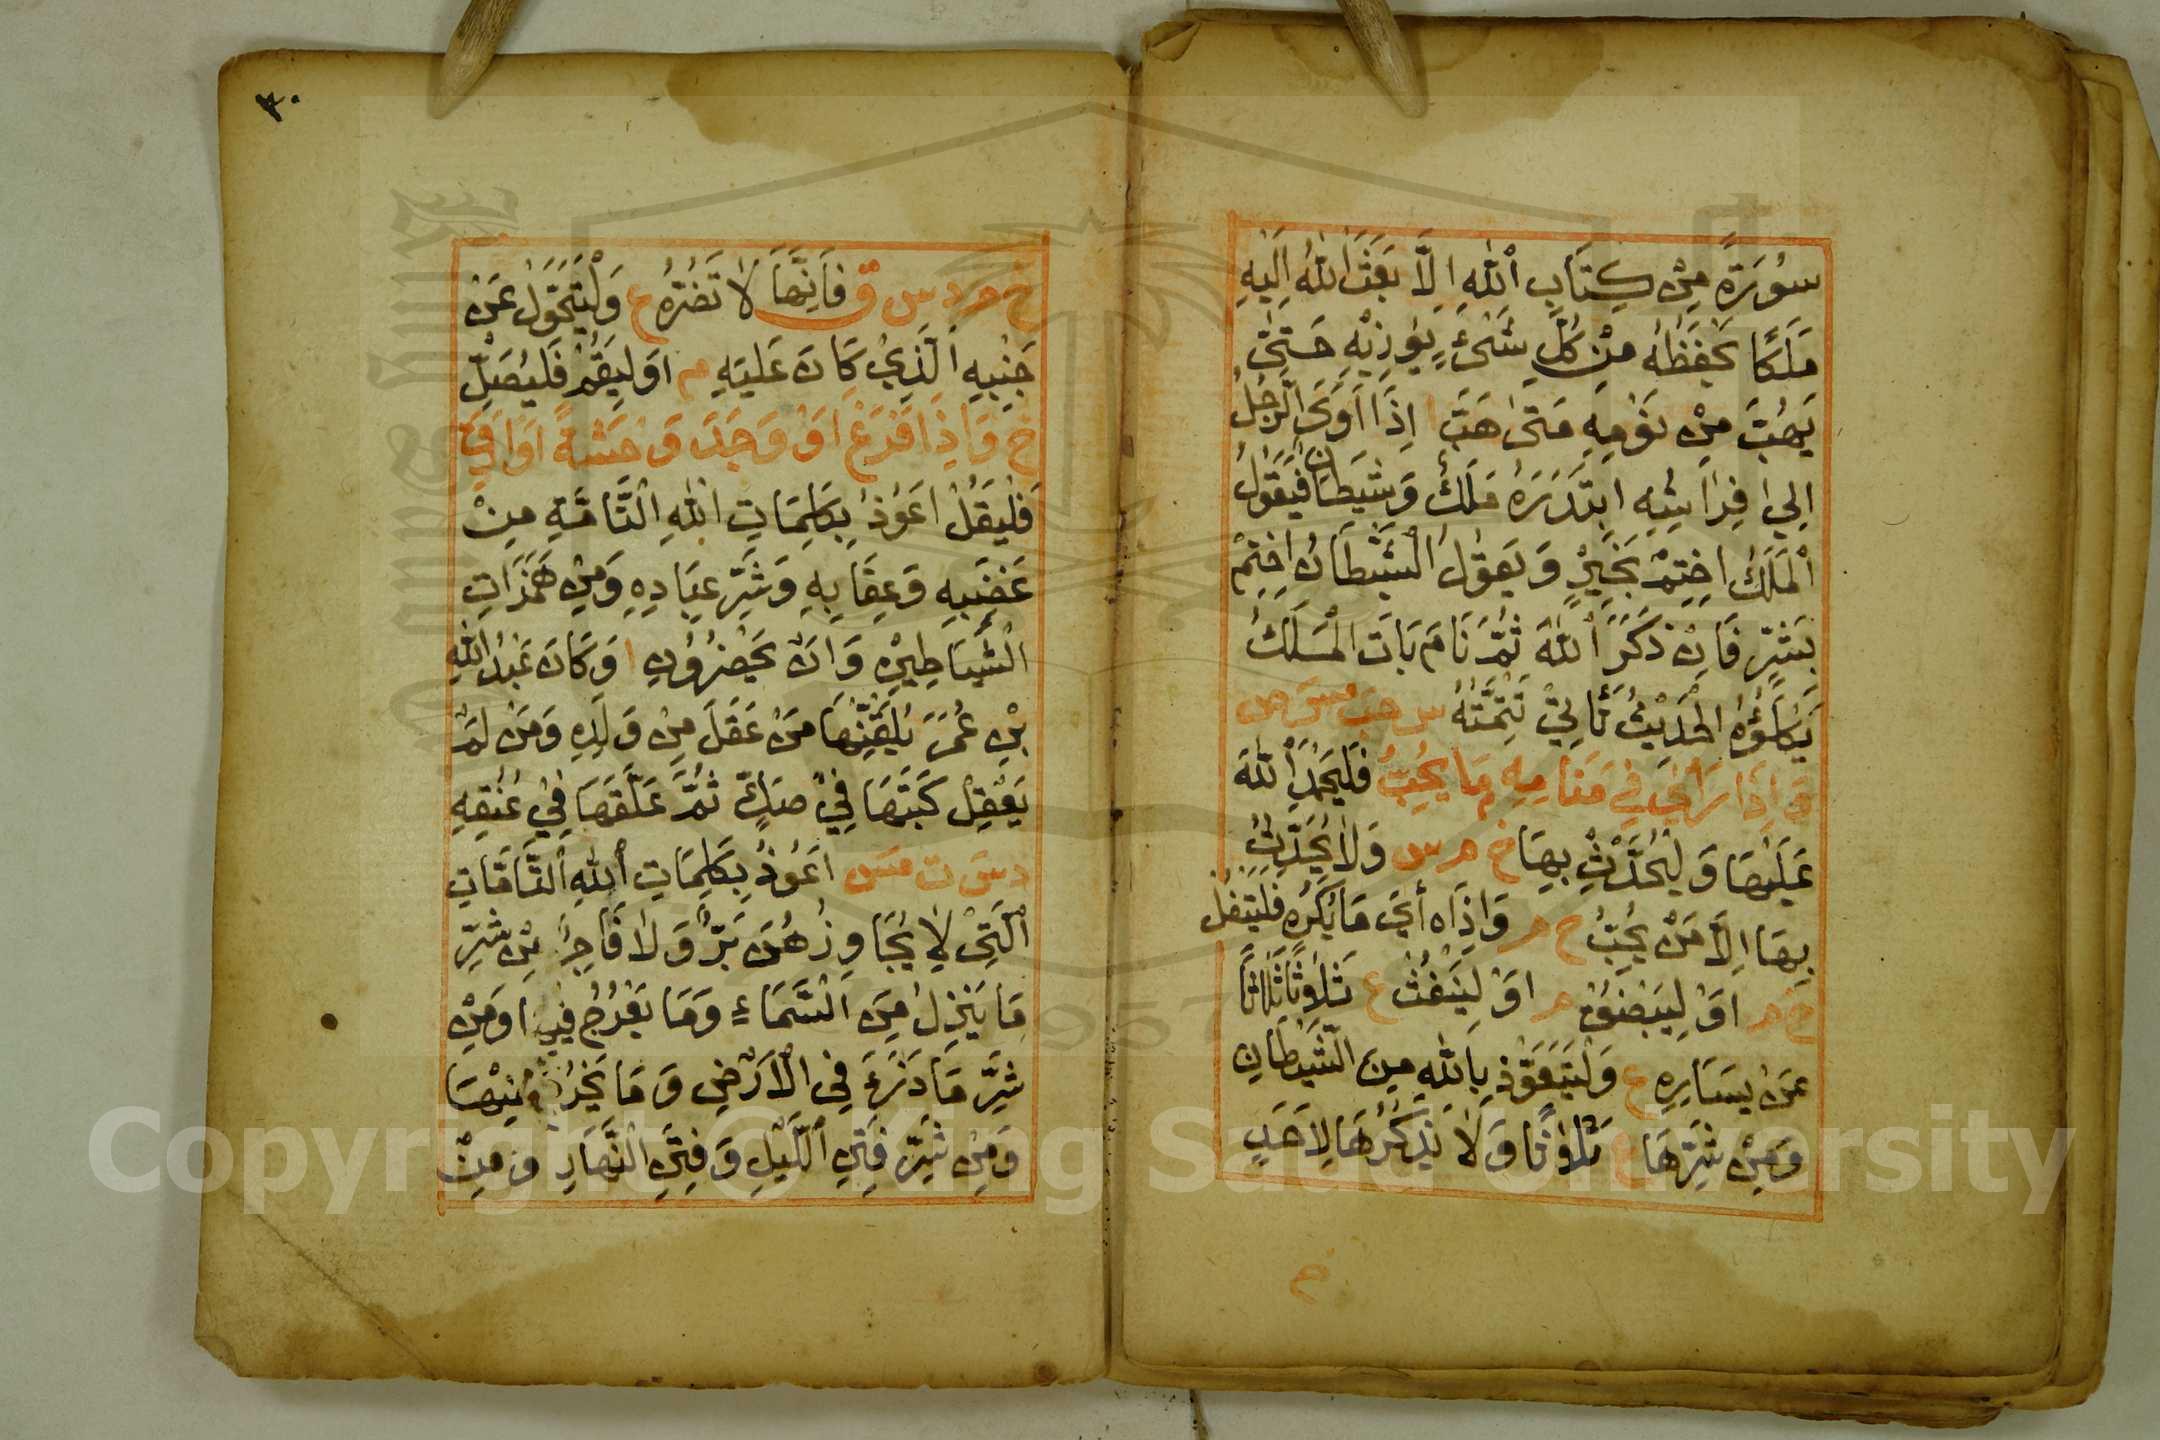 سُورَةً مِنْ كِتَابِ اللهِ اِلَّا بَعَثَ اللهُ اِلَيْهِ
مَلَكًا يَحْفَظُهُ مِنْ كُلِّ شَىْءٍ يُؤذِيْهِ حَتّىٰ
يَهُبَّ مِنْ نَوْمِهِ مَتىٰ هَبَّ ا اِذَا اَوَى الرَّجُلُ
اِلىٰ فِرَاشِهِ ابتَدَرَهُ مَلَكٌ وَشَيطَانٌ فَيَقُولُ
الْمَلَكُ اخْتِمْ بَخَيْرٍ وَيَقُولُ الشَّيْطَانُ اخْتِمْ
بِشَرٍّ فَاِنْ ذَكَرَ اللهَ ثُمَّ نَامَ بَاتَ الْمَلَكُ
يَكْلَؤُهُ الْحَدِيْثُ تَأتِيْ تَتِمَّتُهُ س حب مس ص
وَاِذَا رَأىٰ فِي مَنَامِهِ مَا يُحِبُّ فَلْيَحْمَدِ اللهَ
عَلَيْهَا وَلْيُحَدِّثْ بِهَا خ م س وَلَا يُحَدِّثْ
بِهَا اِلَّا مَنْ يُحِبُّ خ م وَاِذَاه أىٰ مَا يَكْرَهُ فَليَتفُل
خ م اَوْ لِيَبْصُقْ م اَوْ لِيَنْفُثْ ع ثَلَاثًا ثَلَاثًا
عَنْ يَسَارِهِ ع وَلْيَتَعَوَّذْ بِاللهِ مِنَ الشَّيْطَانِ
وَمِنْ شَرِّهَا ثَلَاثًا وَلَا يَذكُرُهَا لِاَحَدٍ
خ
٣٠
خ م د س ق فَاِنَّهَا لَا تَضُرُّهُ ع وَلْيَتَحَوَّلْ عَنْ
جَنْبِهِ الَّذِيْ كَانَ عَلَيْهِ م اَوْ لِيَقُمْ فَليُصَلِّ
خ وَاِذَا فَزِعَ اَوْ وَجَدَ وَحْشَةً اَوْ اَرِقَ
فَلْيَقُلْ اَعُوْذُ بِكَلِمَاتِ اللهِ التَّامَّةِ مِنْ
غَضَبِهِ وَعِقَابِهِ وَشَرِّ عِبَادِهِ وَمِنْ هَمَزَاتِ
الشَّيَاطِيْنِ وَاَنْ يَحْضُرُوْنِ ا وَكَانَ عَبْدُ اللهِ
بْنِ عُمَرَ يُلَقِّنُهَا مَنْ عَقَلَ مِنْ وَلَدِهِ وَمَنْ لَمْ
يَعْقِلْ كَتَبَهَا فِيْ صَكٍّ ثُمَّ عَلَّقَهَا فِيْ عُنُقِهِ
د س ت مس اَعُوْذُ بِكَلِمَاتِ اللهِ التَّامَّاتِ
الَّتِىْ لَا يُجَاوِزُهُنَّ بَرٌّ وَلَا فَاجِرٌ مِنْ شَرِّ
مَا يَنْزِلُ مِنَ السَّمَاءِ وَمَا يَعْرُجُ فِيْهَا وَمِنْ
شَرِّ مَا ذَرَءَ فِى الْاَرْضِ وَمَا يَخْرُجُ مِنْهَا
وَمِنْ شَرِّ فِتَنِ اللَّيْلِ وَفِتَنِ النَّهَارِ وَمِنْ
Copyright © King Saud University
1957